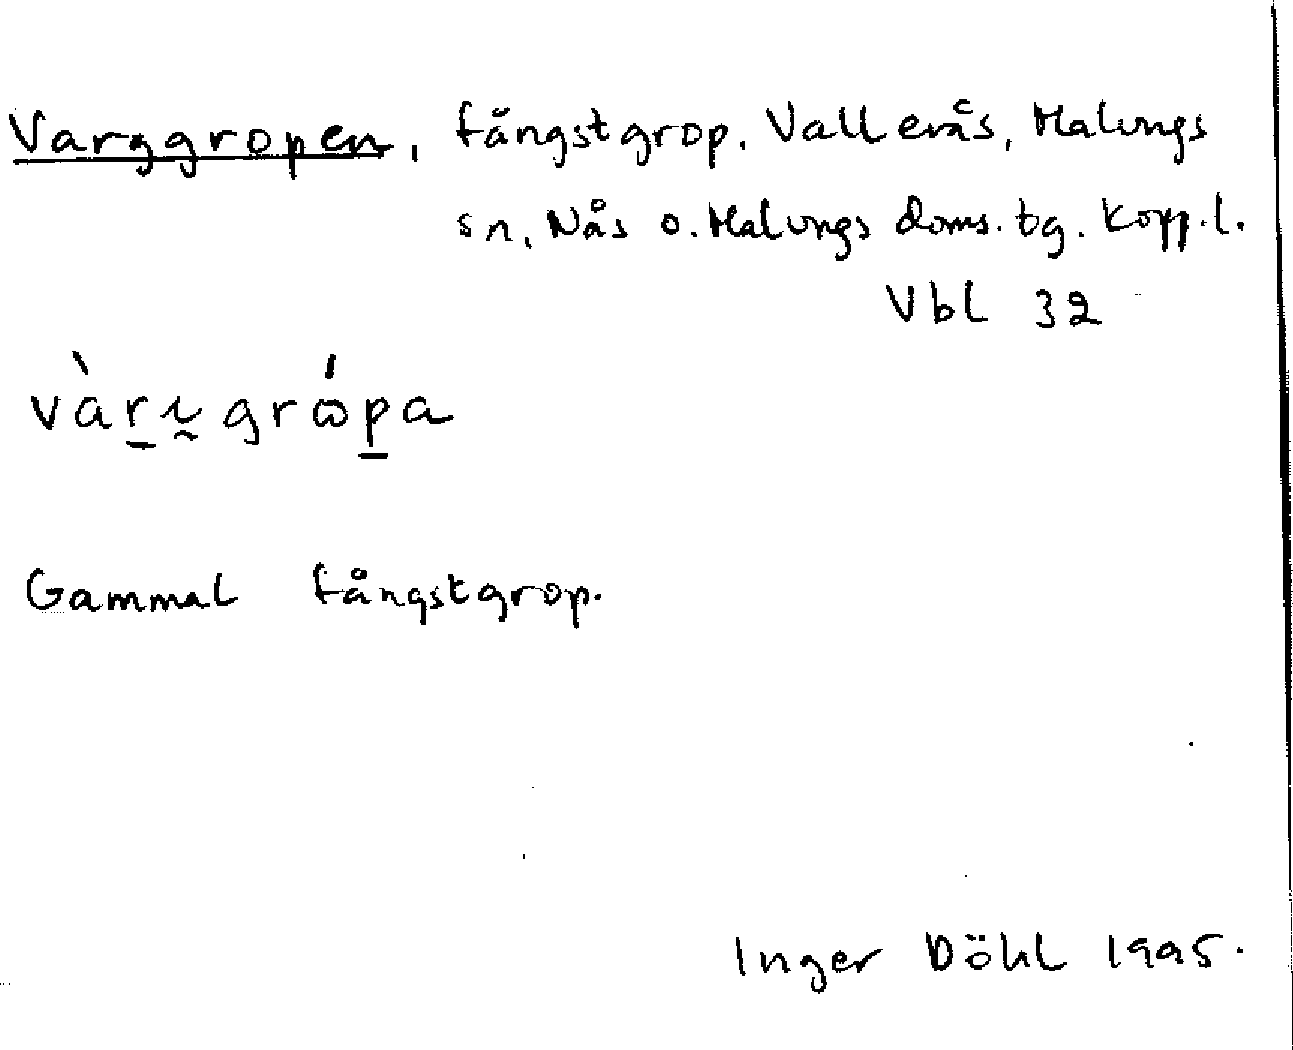 Varggropen, fångstgrop. Vallerås, Malungs
sn, Nås o. Malungs doms. tg. Kopp. l.
Vbl 32
Gammal fångstgrop.
Inger Döhl 1995.